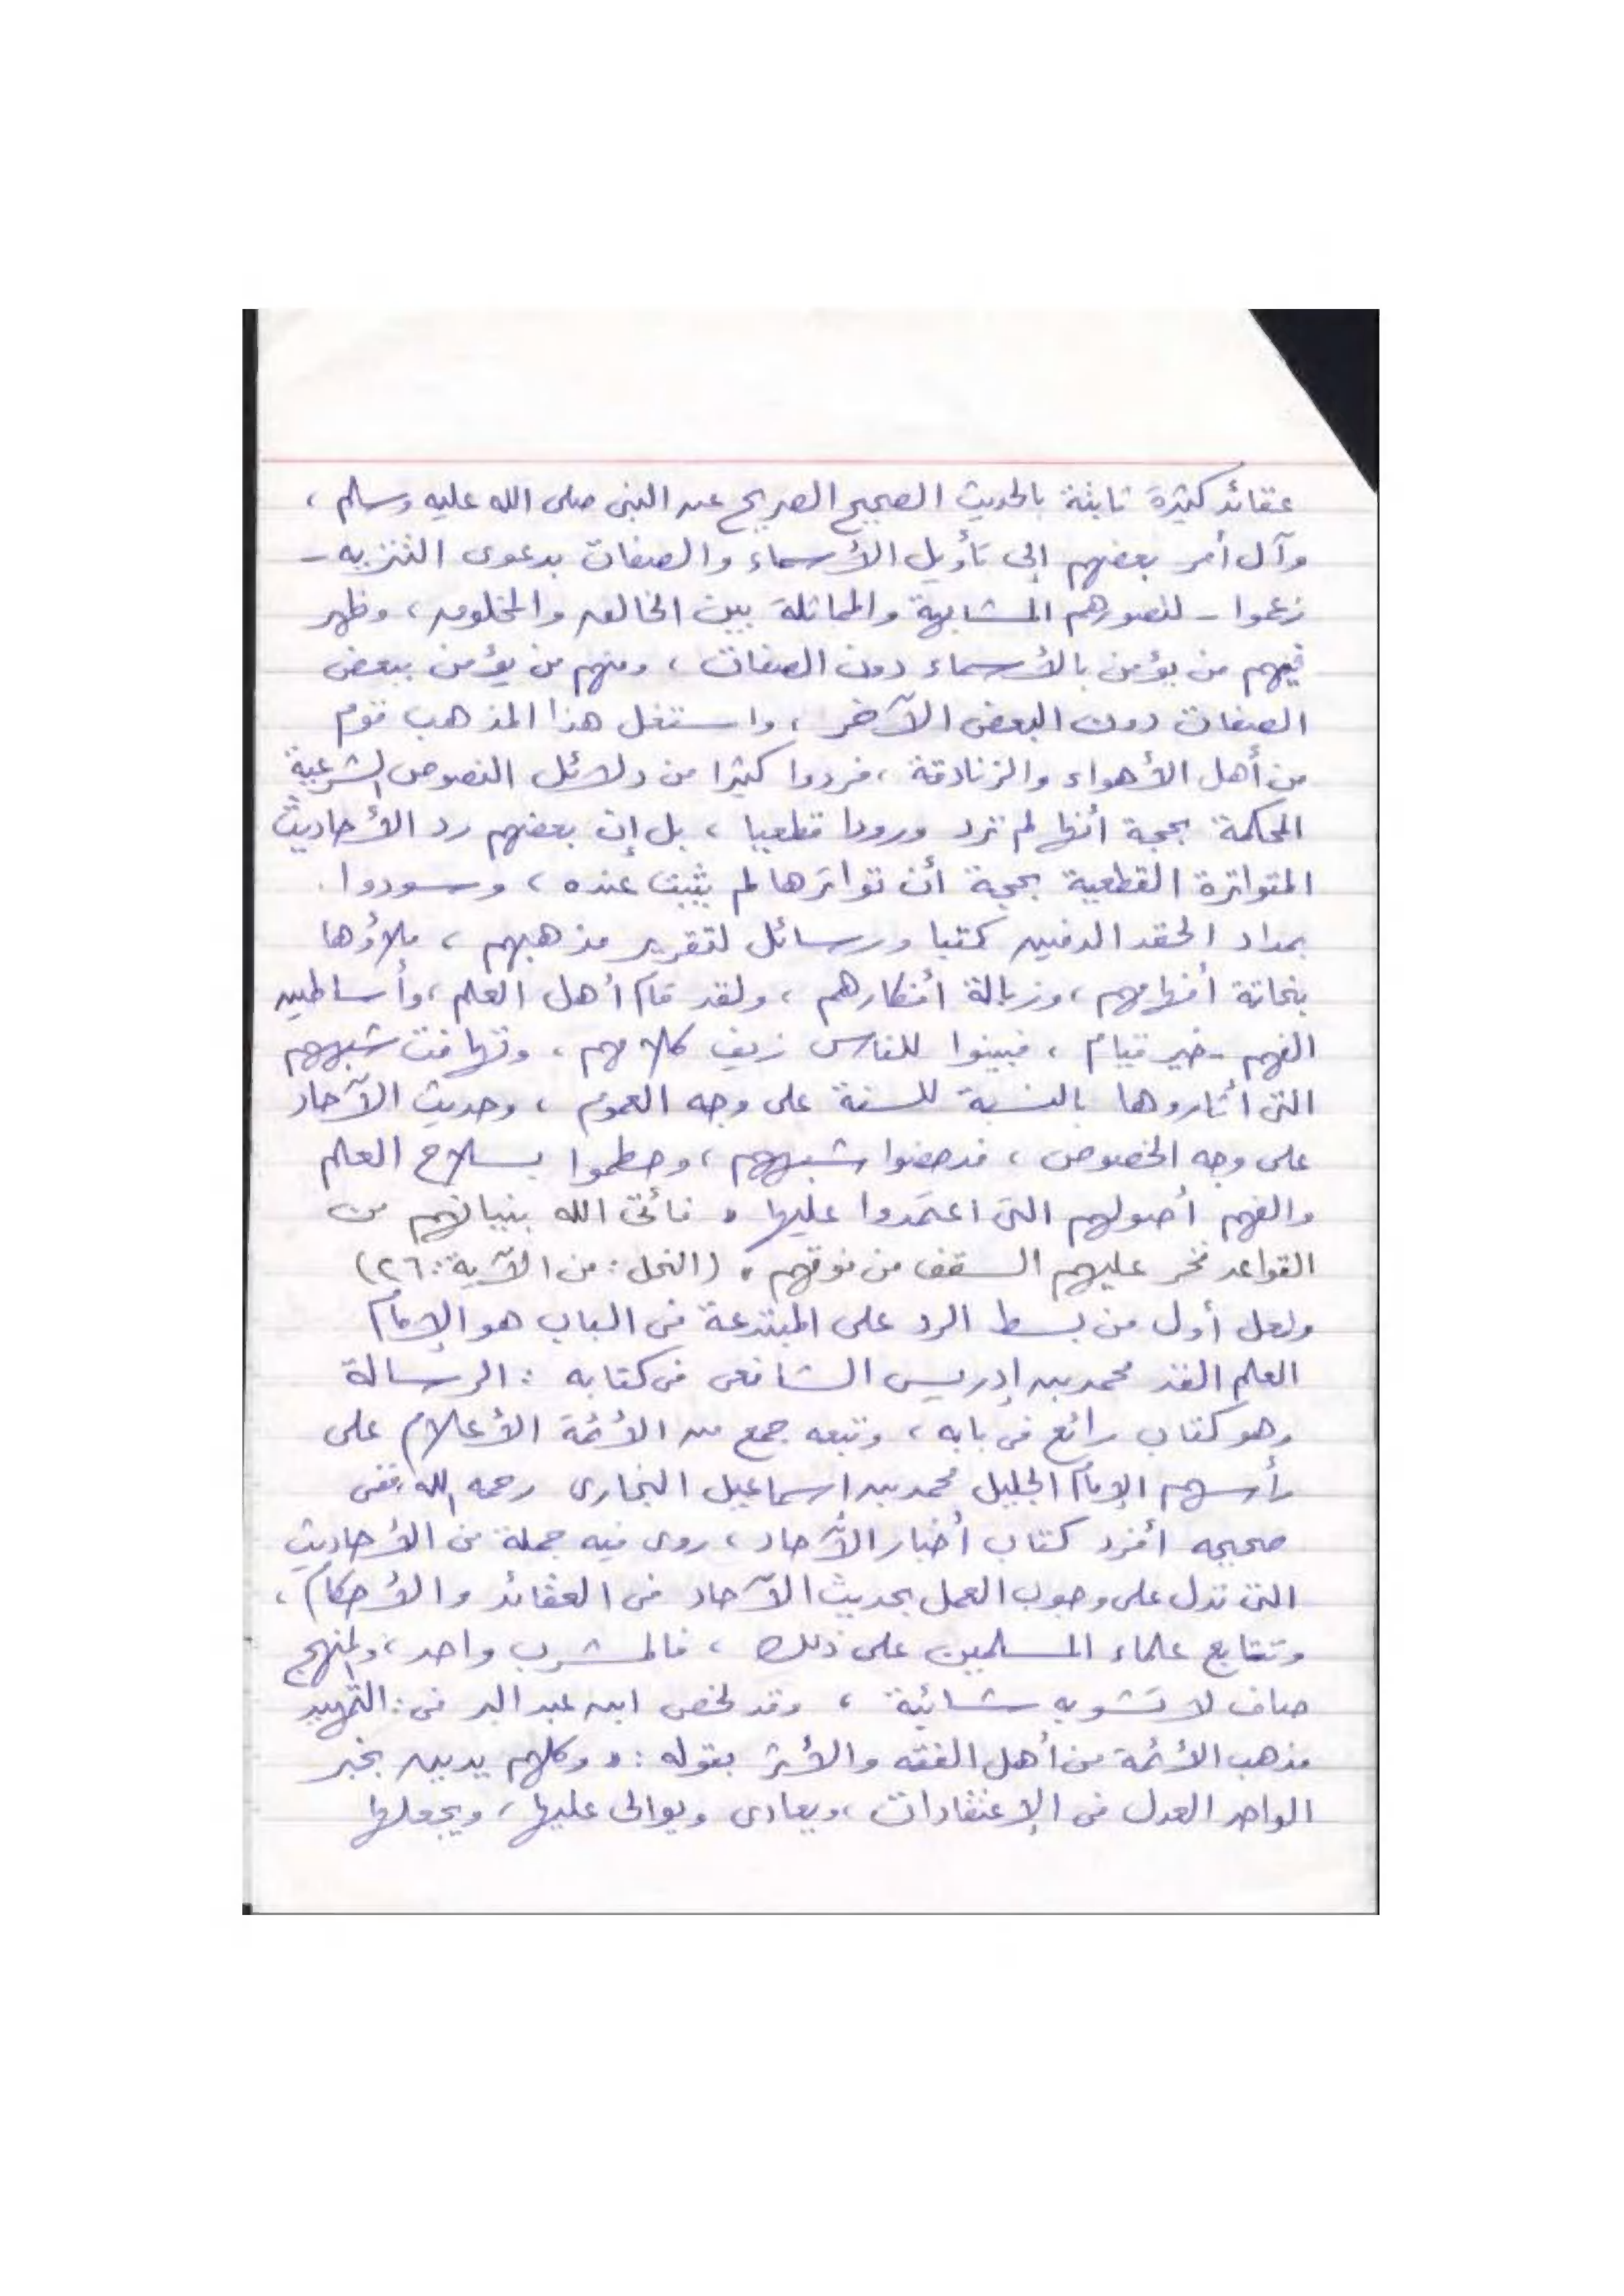 عقائد كثيرة ثابتة بالحديث الصحيح الصريح عن النبى صلى الله عليه وسلم ،
وآل أمر بعضهم إلى تأويل الأسماء والصفات بدعوى التنزيه -
زعموا - لتصورهم المشابهة والمماثلة بين الخالق والمخلوق ، وظهر
فيهم من يؤمن بالأسماء دون الصفات ، ومنهم من يؤمن ببعض
الصفات دون البعض الآخر ، واستغل هذا المذهب قوم
من أهل الأهواء والزنادقة ، فردوا كثيرا من دلائل النصوص الشرعية
المحكمة بحجة أنها لم ترد ورودا قطعيا ، بل إن بعضهم رد الأحاديث
المتواترة القطعية بحجة أن تواترها لم يثبت عنده ، وسودوا
بمداد الحقد الدفين كتبا ورسائل لتقرير مذهبهم ، ملاؤها
بنحاتة أفهامهم ، وزبالة أفكارهم ، ولقد قام أهل العلم ، وأساطين
الفهم - خير قيام ، فبينوا للناس زيف كلامهم ، وتهافت شبههم
التى أثاروها بالنسبة للسنة على وجه العموم ، وحديث الآحاد
على وجه الخصوص ، فدحضوا شبههم ، وحطموا بسلاح العلم
والفهم أصولهم التى اعتمدوا عليها " فأتى الله بنيانهم من
القواعد فخر عليهم السقف من فوقهم " (النحل : من الآية : ٢٦)
ولعل أول من بسط الرد على المبتدعة فى الباب هو الإمام
العلم الفذ محمد بن إدريس الشافعى فى كتابه : الرسالة
وهو كتاب رائع فى بابه ، وتبعه جمع من الأئمة الأعلام على
رأسهم الإمام الجليل محمد بن اسماعيل البخارى رحمه الله ، ففى
صحيحه أفرد كتاب أخبار الآحاد ، روى فيه جملة من الأحاديث
التى تدل على وجوب العمل بحديث الآحاد فى العقائد والأحكام ،
وتتابع علماء المسلمين على ذلك ، فالمشرب واحد ، والمنهج
صاف لا تشوبه شائبة ، وقد لخص ابن عبد البر فى : التمهيد
مذهب الأئمة من أهل الفقه والأثر بقوله : " وكلهم يدين بخبر
الواحد العدل فى الإعتقادات ، ويعادى ويوالى عليها ، ويجعلها